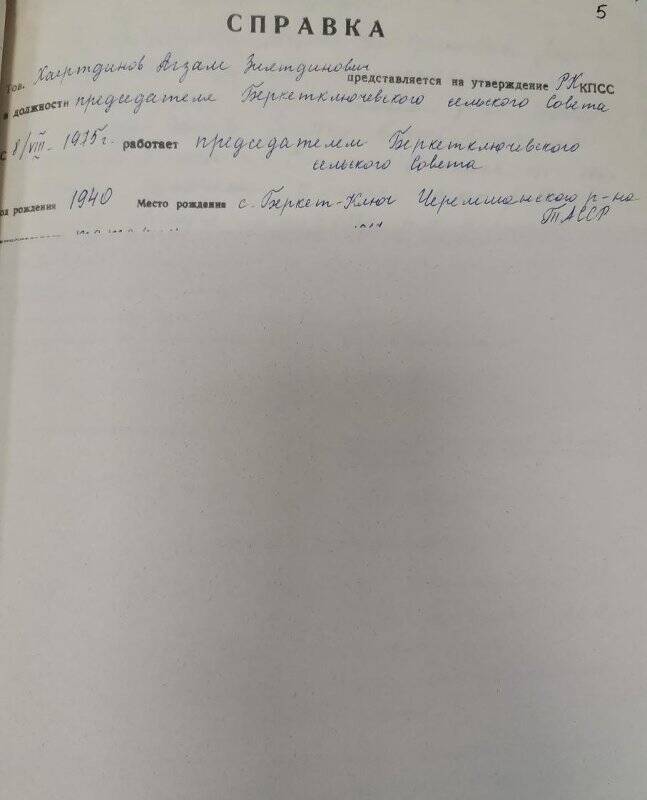 5
СПРАВКА
Тов. Хаертдинов Агзам Зиятдинович представляется на утверждение РК КПСС
в должности председателя Беркетключевского сельского Совета
С 8/VIII- 1975г. работает председателем Беркетключевского
сельского Совета
од рождения 1940 Место рождения с. Беркет-Ключ Черемшанского р-на
ТАССР